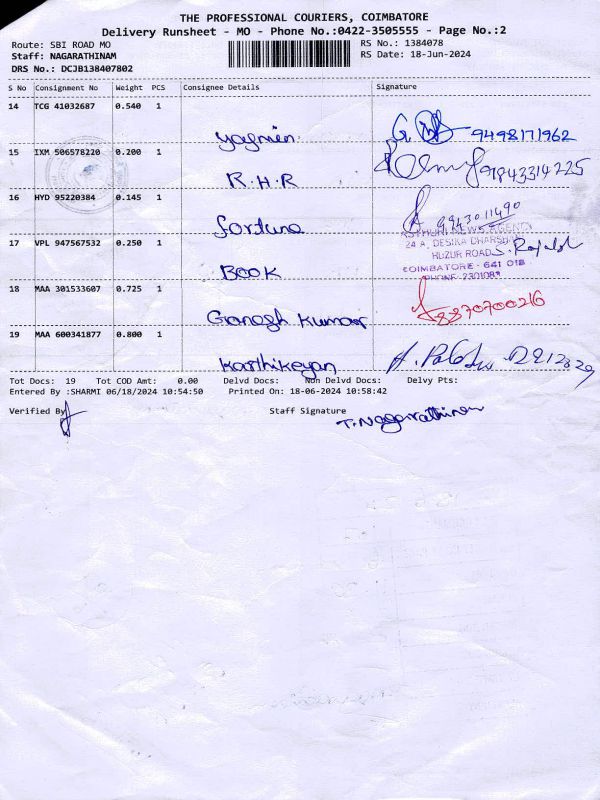 THE PROFESSIONAL COURIERS, COIMBATORE
Delivery Runsheet - MO - Phone No.:0422-3505555 - Page No.:2
Route: SBI ROAD MO
Staff: NAGARATHINAM
DRS No.: DCJB138407802
RS No.: 1384078
RS Date: 18-Jun-2024
S No Consignment No Weight PCS Consignee Details Signature
14 TCG 41032687 0.540 1
yasmien 9498171962
15 IXM 506578220 0.200 1
R.H.R 9843314225
16 HYD 95220384 0.145 1
fortune 9943011490
17 VPL 947567532 0.250 1
Book
24 A, DESIKA
HUZUR ROAD
COIMBATORE - 641 018
PHONE
18 MAA 301533607 0.725 1
Ganesh Kumar 8870700216
19 MAA 600341877 0.800 1
Karthikeyan
Tot Docs: 19 Tot COD Amt: 0.00 Delvd Docs: Non Delvd Docs: Delvy Pts:
Entered By :SHARMI 06/18/2024 10:54:50 Printed On: 18-06-2024 10:58:42
Verified By Staff Signature
T. Nagarathinam